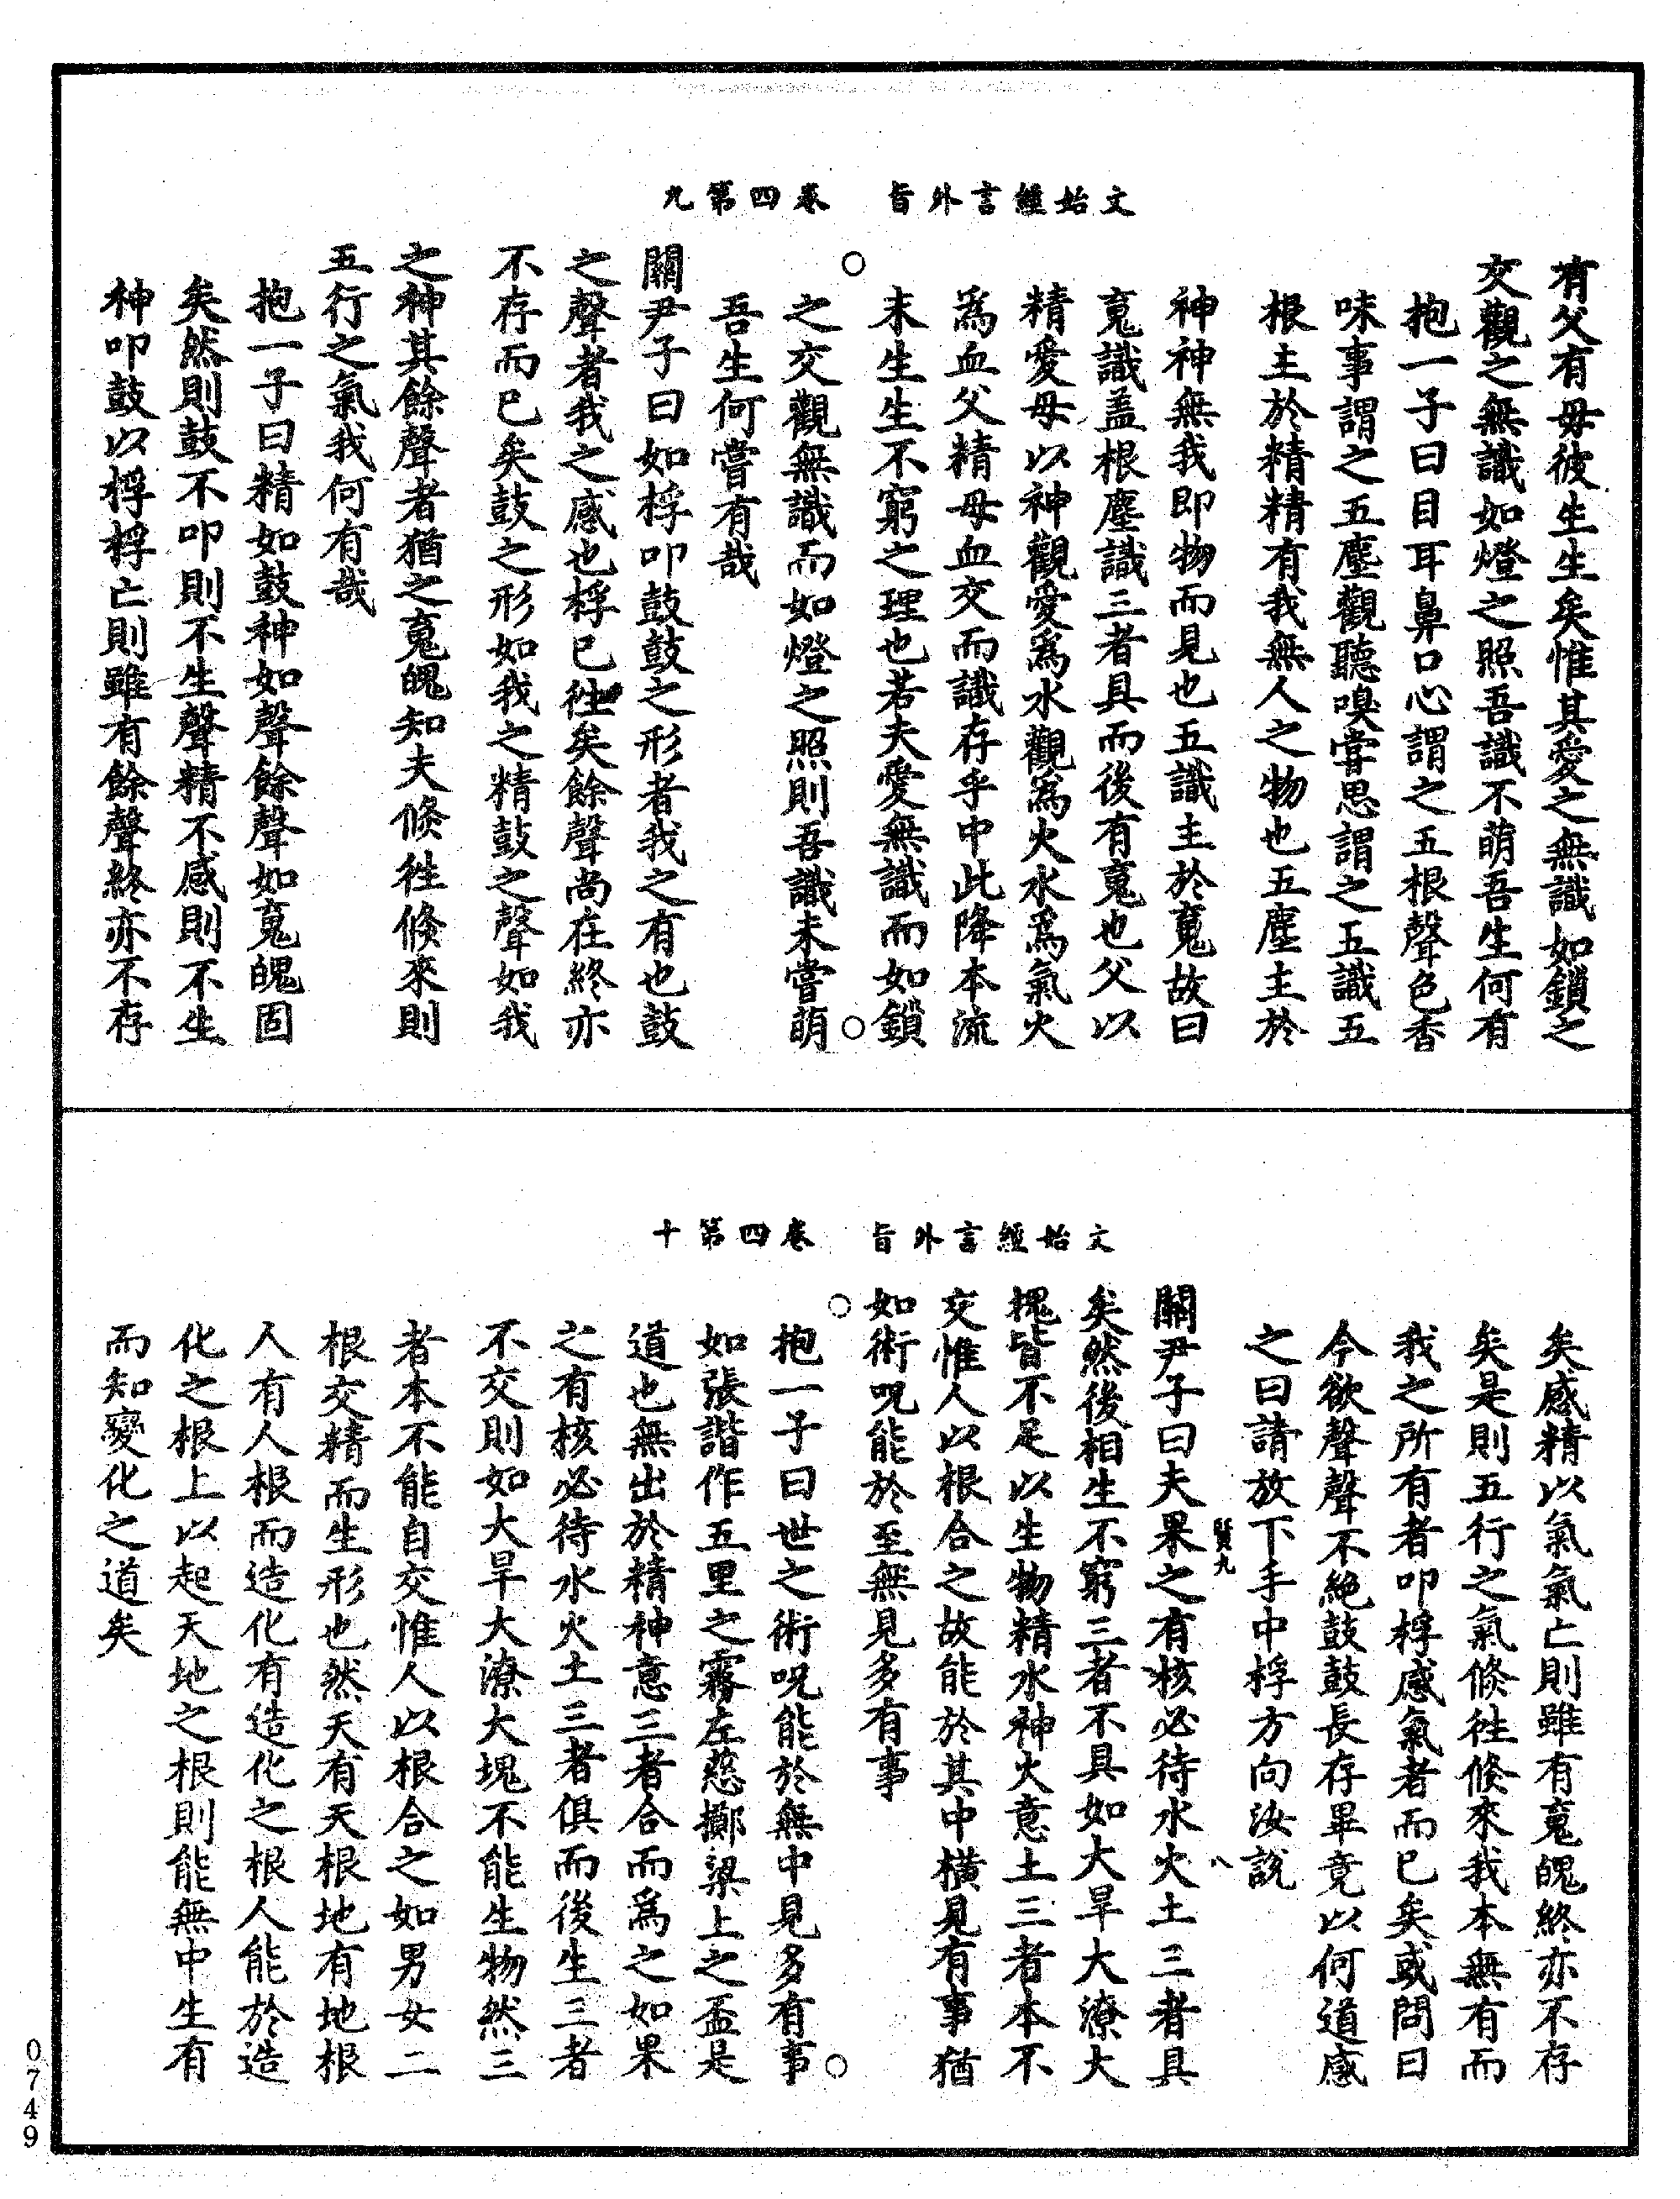 文始經言外旨　卷四第九
有父有母彼生生矣惟其愛之無識如鎖之
交觀之無識如燈之照吾識不萌吾生何有
抱一子曰目耳鼻口心謂之五根聲色香
味事謂之五塵觀聽嗅嘗思謂之五識五
根主於精精有我無人之物也五塵主於
神神無我即物而見也五識主於䰟故曰
䰟識盖根塵識三者具而後有䰟也父以
精愛母以神觀愛爲水觀爲火水爲氣火
爲血父精母血交而識存乎中此降本流
末生生不窮之理也若夫愛無識而如鎖
之交觀無識而如燈之照則吾識未嘗萌
吾生何嘗有哉
關尹子曰如桴叩鼓鼓之形者我之有也鼓
之聲者我之感也桴已徃矣餘聲尚在終亦
不存而已矣鼓之形如我之精鼓之聲如我
之神其餘聲者猶之䰟魄知夫倏徃倏來則
五行之氣我何有哉
抱一子曰精如鼓神如聲餘聲如䰟魄固
矣然則鼓不叩則不生聲精不感則不生
神叩鼓以桴桴亡則雖有餘聲終亦不存
文始經言外旨　卷四第十
矣感精以氣氣亡則雖有䰟魄終亦不存
矣是則五行之氣倏徃倏來我本無有而
我之所有者叩桴感氣者而已矣或問曰
今欲聲聲不絕鼓鼓長存畢竟以何道感
之曰請放下手中桴方向汝說
賢九　八
關尹子曰夫果之有核必待水火土三者具
矣然後相生不窮三者不具如大旱大潦大
塊皆不足以生物精水神火意土三者本不
交惟人以根合之故能於其中橫見有事猶
如術呪能於至無見多有事
抱一子曰世之術呪能於無中見多有事
如張諧作五里之霧左慈擲梁上之盃是
道也無出於精神意三者合而爲之如果
之有核必待水火土三者俱而後生三者
不交則如大旱大潦大塊不能生物然三
者本不能自交惟人以根合之如男女二
根交精而生形也然天有天根地有地根
人有人根而造化有造化之根人能於造
化之根上以起天地之根則能無中生有
而知變化之道矣
0749